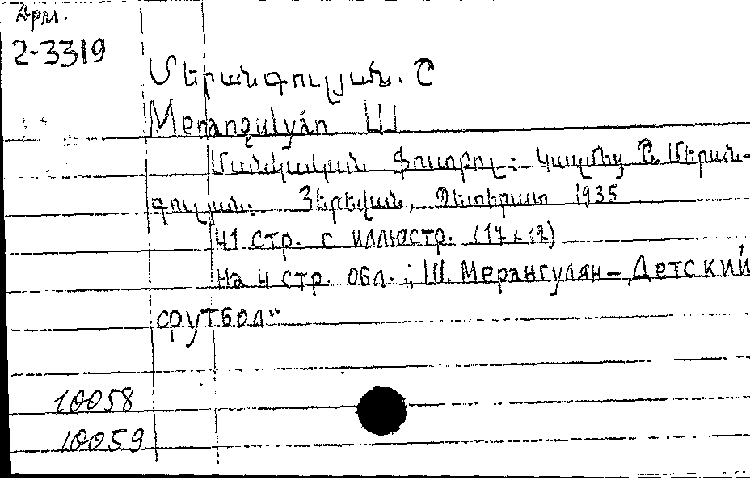 Арм.
2-3319
Մերանգուլյան. Շ
Merangulyán Ш
Մանկական ֆուտբոլ: Կազմեց Շ. Մերան-
գուլյան. Յերեվան, Պետհրատ 1935
41 стр. с иллюстр. (17×12)
На 4 стр. обл.: Ш. Мерангулян – Детский
футбол"
10058
10059